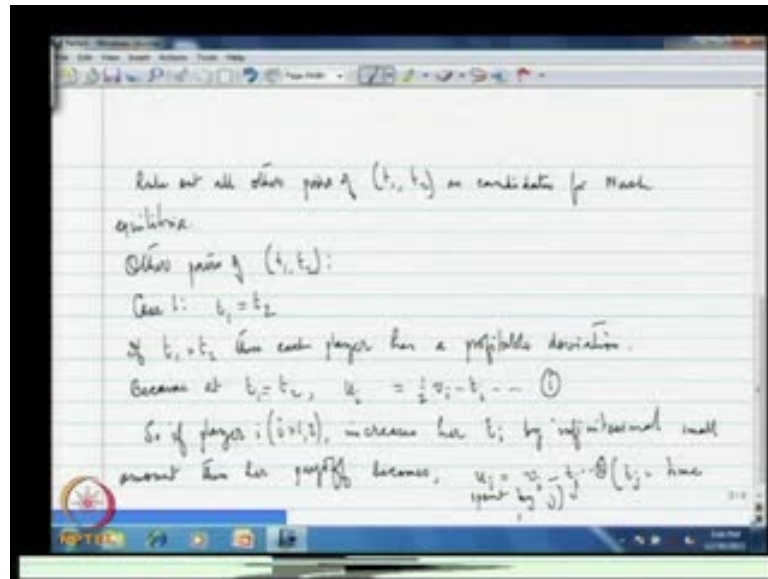 Rule out all other pairs of (t₁, t₂) as candidates for Nash
equilibria.
Other pairs of (t₁, t₂):
Case 1: t₁ = t₂
If t₁ = t₂ then each player has a profitable deviation.
Because at t₁ = t₂, uᵢ = ½ vᵢ - tᵢ -- ①
So if player i (i=1,2), increases her tᵢ by infinitesimal small
amount then her payoff becomes, uᵢ = vᵢ - tⱼ (tⱼ = time
spent by j)
NPTEL